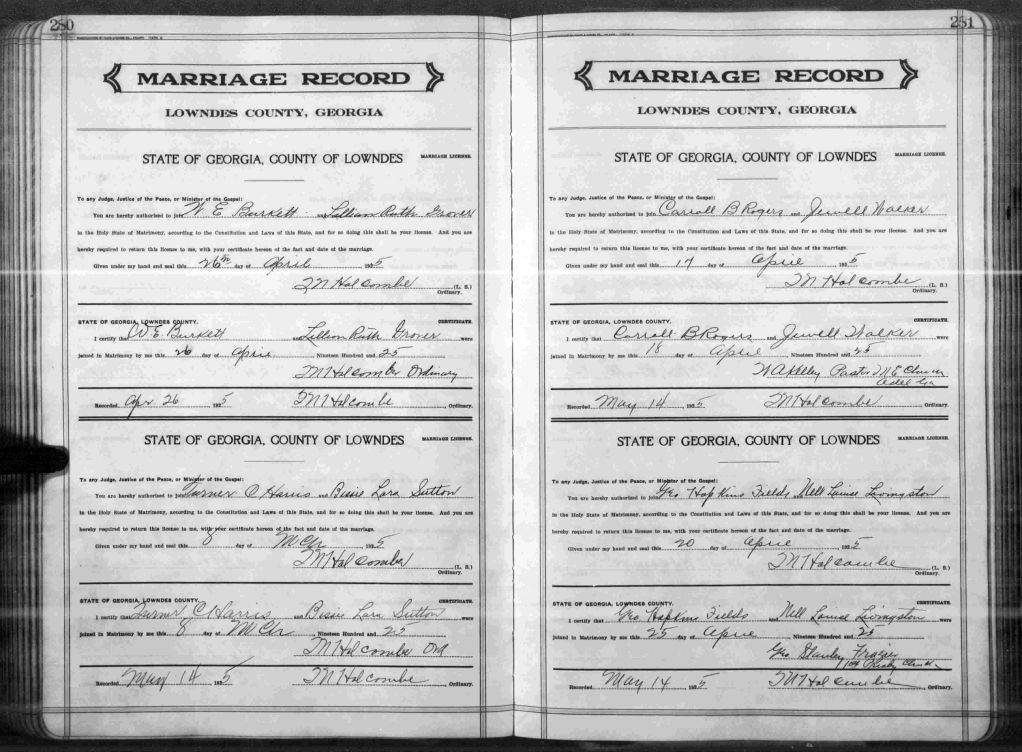 280
MARRIAGE RECORD
LOWNDES COUNTY, GEORGIA
STATE OF GEORGIA, COUNTY OF LOWNDES MARRIAGE LICENSE.
To any Judge, Justice of the Peace, or Minister of the Gospel:
You are hereby authorized to join W E Burkett and Lillian Ruth Grover
in the Holy State of Matrimony, according to the Constitution and Laws of this State, and for so doing this shall be your license. And you are
hereby required to return this license to me, with your certificate hereon of the fact and date of the marriage.
Given under my hand and seal this 26th day of April 1925
T M Holcombe (L. S.)
Ordinary.
STATE OF GEORGIA, LOWNDES COUNTY. CERTIFICATE.
I certify that W E Burkett and Lillian Ruth Grover were
joined in Matrimony by me this 26 day of April Nineteen Hundred and 25
T M Holcombe Ordinary
Recorded Apr 26 1925 T M Holcombe, Ordinary.
STATE OF GEORGIA, COUNTY OF LOWNDES MARRIAGE LICENSE.
To any Judge, Justice of the Peace, or Minister of the Gospel:
You are hereby authorized to join Turner C Harris and Bessie Lara Sutton
in the Holy State of Matrimony, according to the Constitution and Laws of this State, and for so doing this shall be your license. And you are
hereby required to return this license to me, with your certificate hereon of the fact and date of the marriage.
Given under my hand and seal this 8 day of Mch 1925
T M Holcombe (L. S.)
Ordinary.
STATE OF GEORGIA, LOWNDES COUNTY. CERTIFICATE.
I certify that Turner C Harris and Bessie Lara Sutton were
joined in Matrimony by me this 8 day of Mch, Nineteen Hundred and 25
T M Holcombe Ord
Recorded May 14 1925 T M Holcombe, Ordinary.
281
MARRIAGE RECORD
LOWNDES COUNTY, GEORGIA
STATE OF GEORGIA, COUNTY OF LOWNDES MARRIAGE LICENSE.
To any Judge, Justice of the Peace, or Minister of the Gospel:
You are hereby authorized to join Carroll B Rogers and Jewell Walker
in the Holy State of Matrimony, according to the Constitution and Laws of this State, and for so doing this shall be your license. And you are
hereby required to return this license to me, with your certificate hereon of the fact and date of the marriage.
Given under my hand and seal this 17 day of April 1925
T M Holcombe (L. S.)
Ordinary.
STATE OF GEORGIA, LOWNDES COUNTY. CERTIFICATE.
I certify that Carroll B Rogers and Jewell Walker were
joined in Matrimony by me this 18 day of April, Nineteen Hundred and 25
W A Kelley Pastor M E Church
Adel Ga
Recorded May 14, 1925 T M Holcombe, Ordinary.
STATE OF GEORGIA, COUNTY OF LOWNDES MARRIAGE LICENSE.
To any Judge, Justice of the Peace, or Minister of the Gospel:
You are hereby authorized to join Geo Hopkins Fields Nell Louise Livingston
in the Holy State of Matrimony, according to the Constitution and Laws of this State, and for so doing this shall be your license. And you are
hereby required to return this license to me, with your certificate hereon of the fact and date of the marriage.
Given under my hand and seal this 20 day of April 1925
T M Holcombe (L. S.)
Ordinary.
STATE OF GEORGIA, LOWNDES COUNTY. CERTIFICATE.
I certify that Geo Hopkins Fields and Nell Louise Livingston were
joined in Matrimony by me this 25 day of April, Nineteen Hundred and 25
Geo Stanley Frazer
Church
Recorded May 14 1925 T M Holcombe, Ordinary.